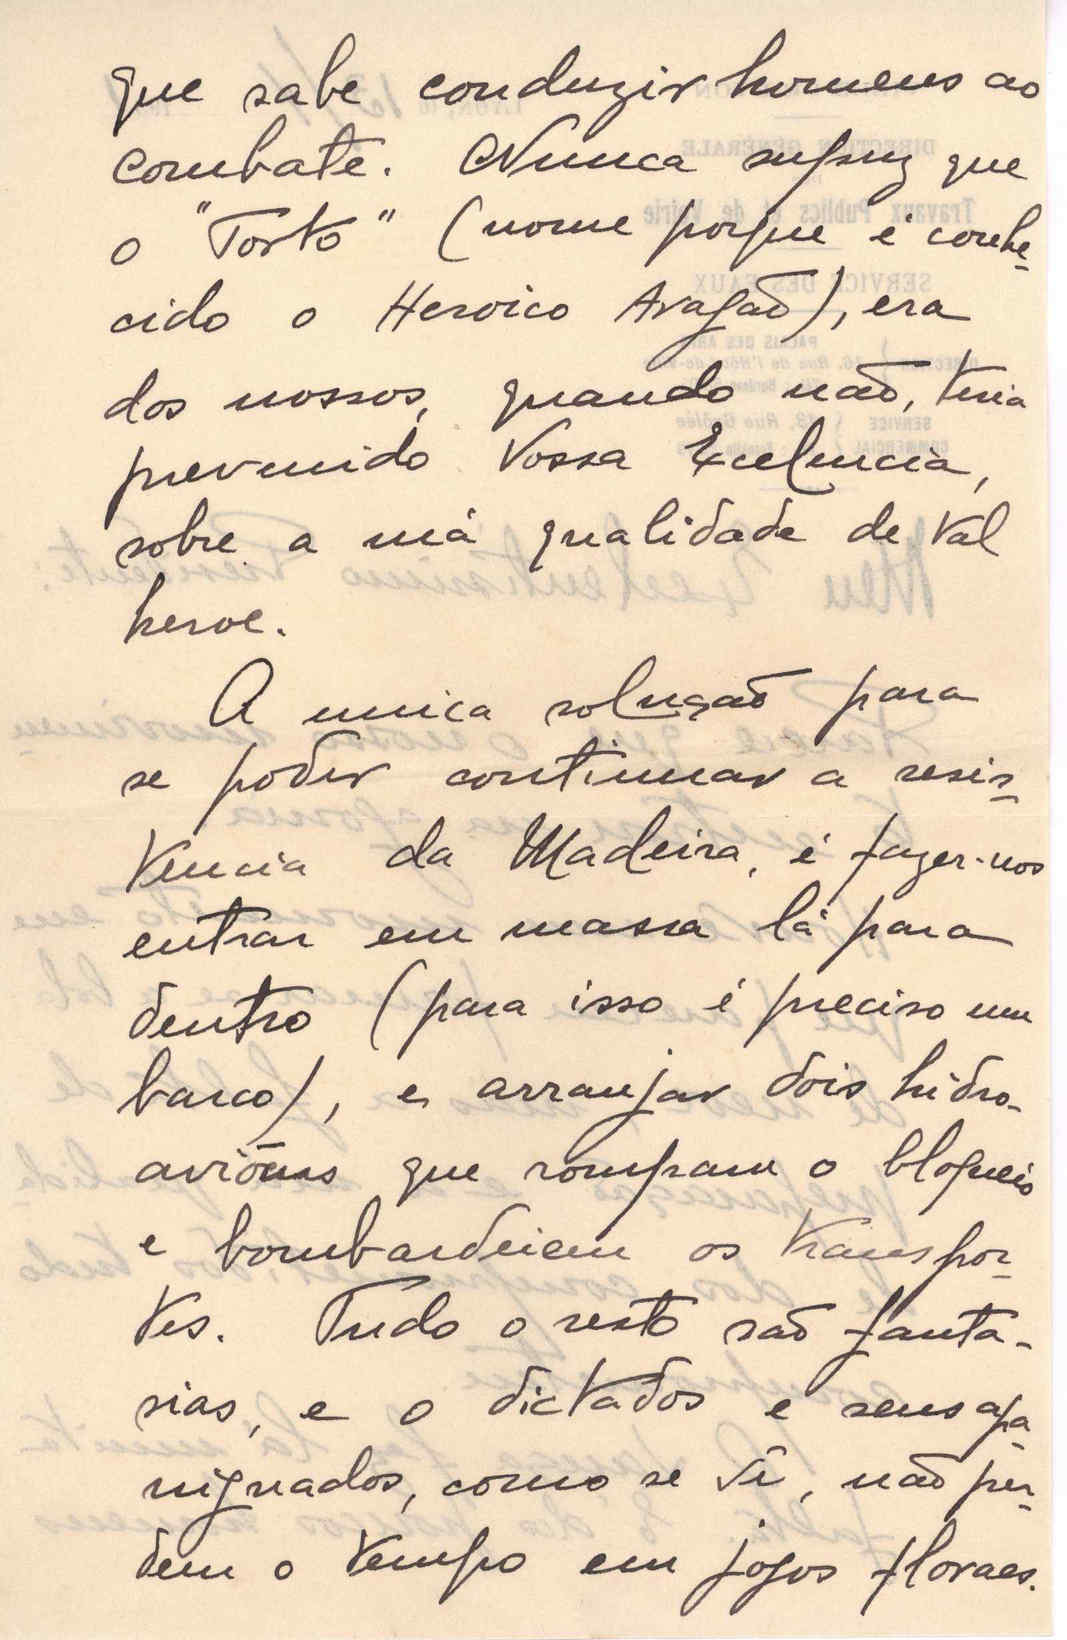 que sabe conduzir homens ao
combate. Nunca supuz que
o "Torto" (nome porque é conhe-
cido o Heroico Aragaõ), era
dos nossos, quando naõ, teria
prevenido Vossa Excelencia,
sobre a má qualidade de tal
heroe.
A unica soluçaõ para
se poder continuar a resis-
tencia da Madeira, é fazer-nos
entrar em massa lá para
dentro (para isso é preciso um
barco), e arranjar dois hidro-
aviões que rompam o bloqueio
e bombardeiem os transpor-
tes. Tudo o resto saõ fanta-
sias, e o dictador e seus apa-
niguados, como se vê, naõ per-
dem o tempo em jogos floraes.